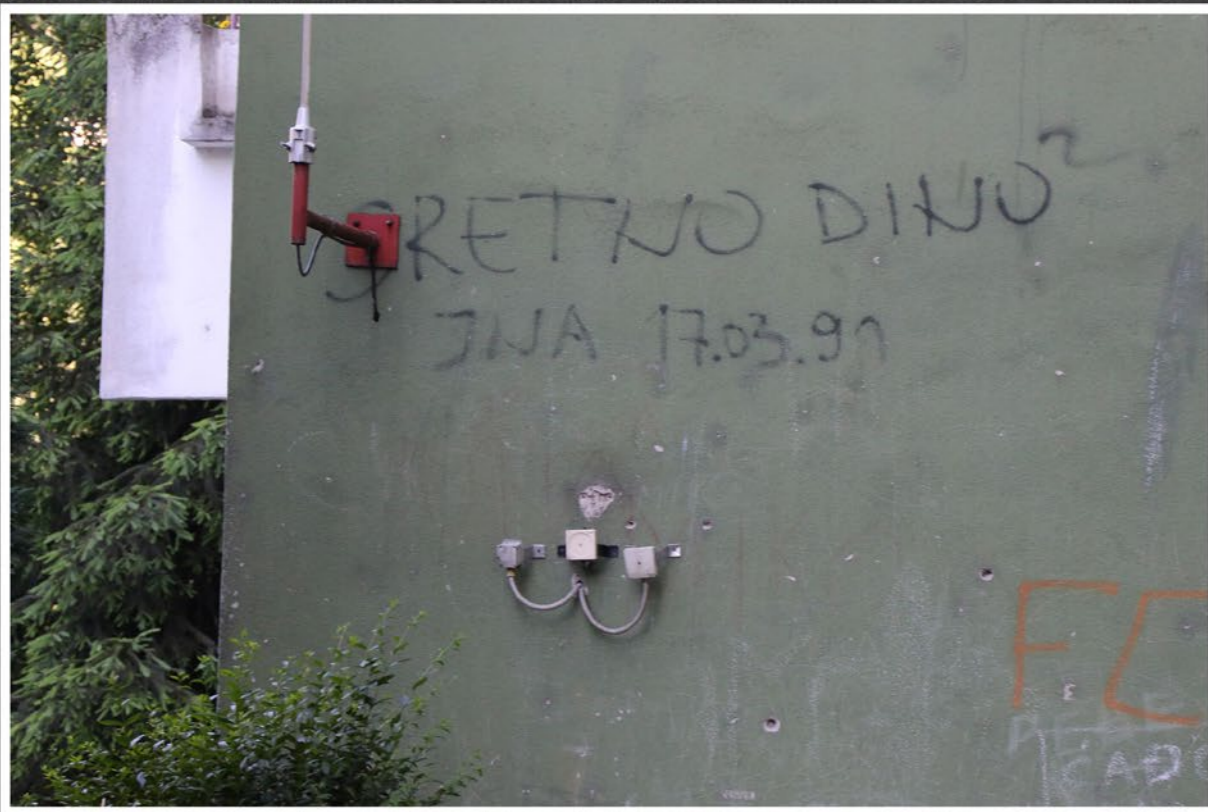 SRETNO DINO
JNA 17.03.91
FC